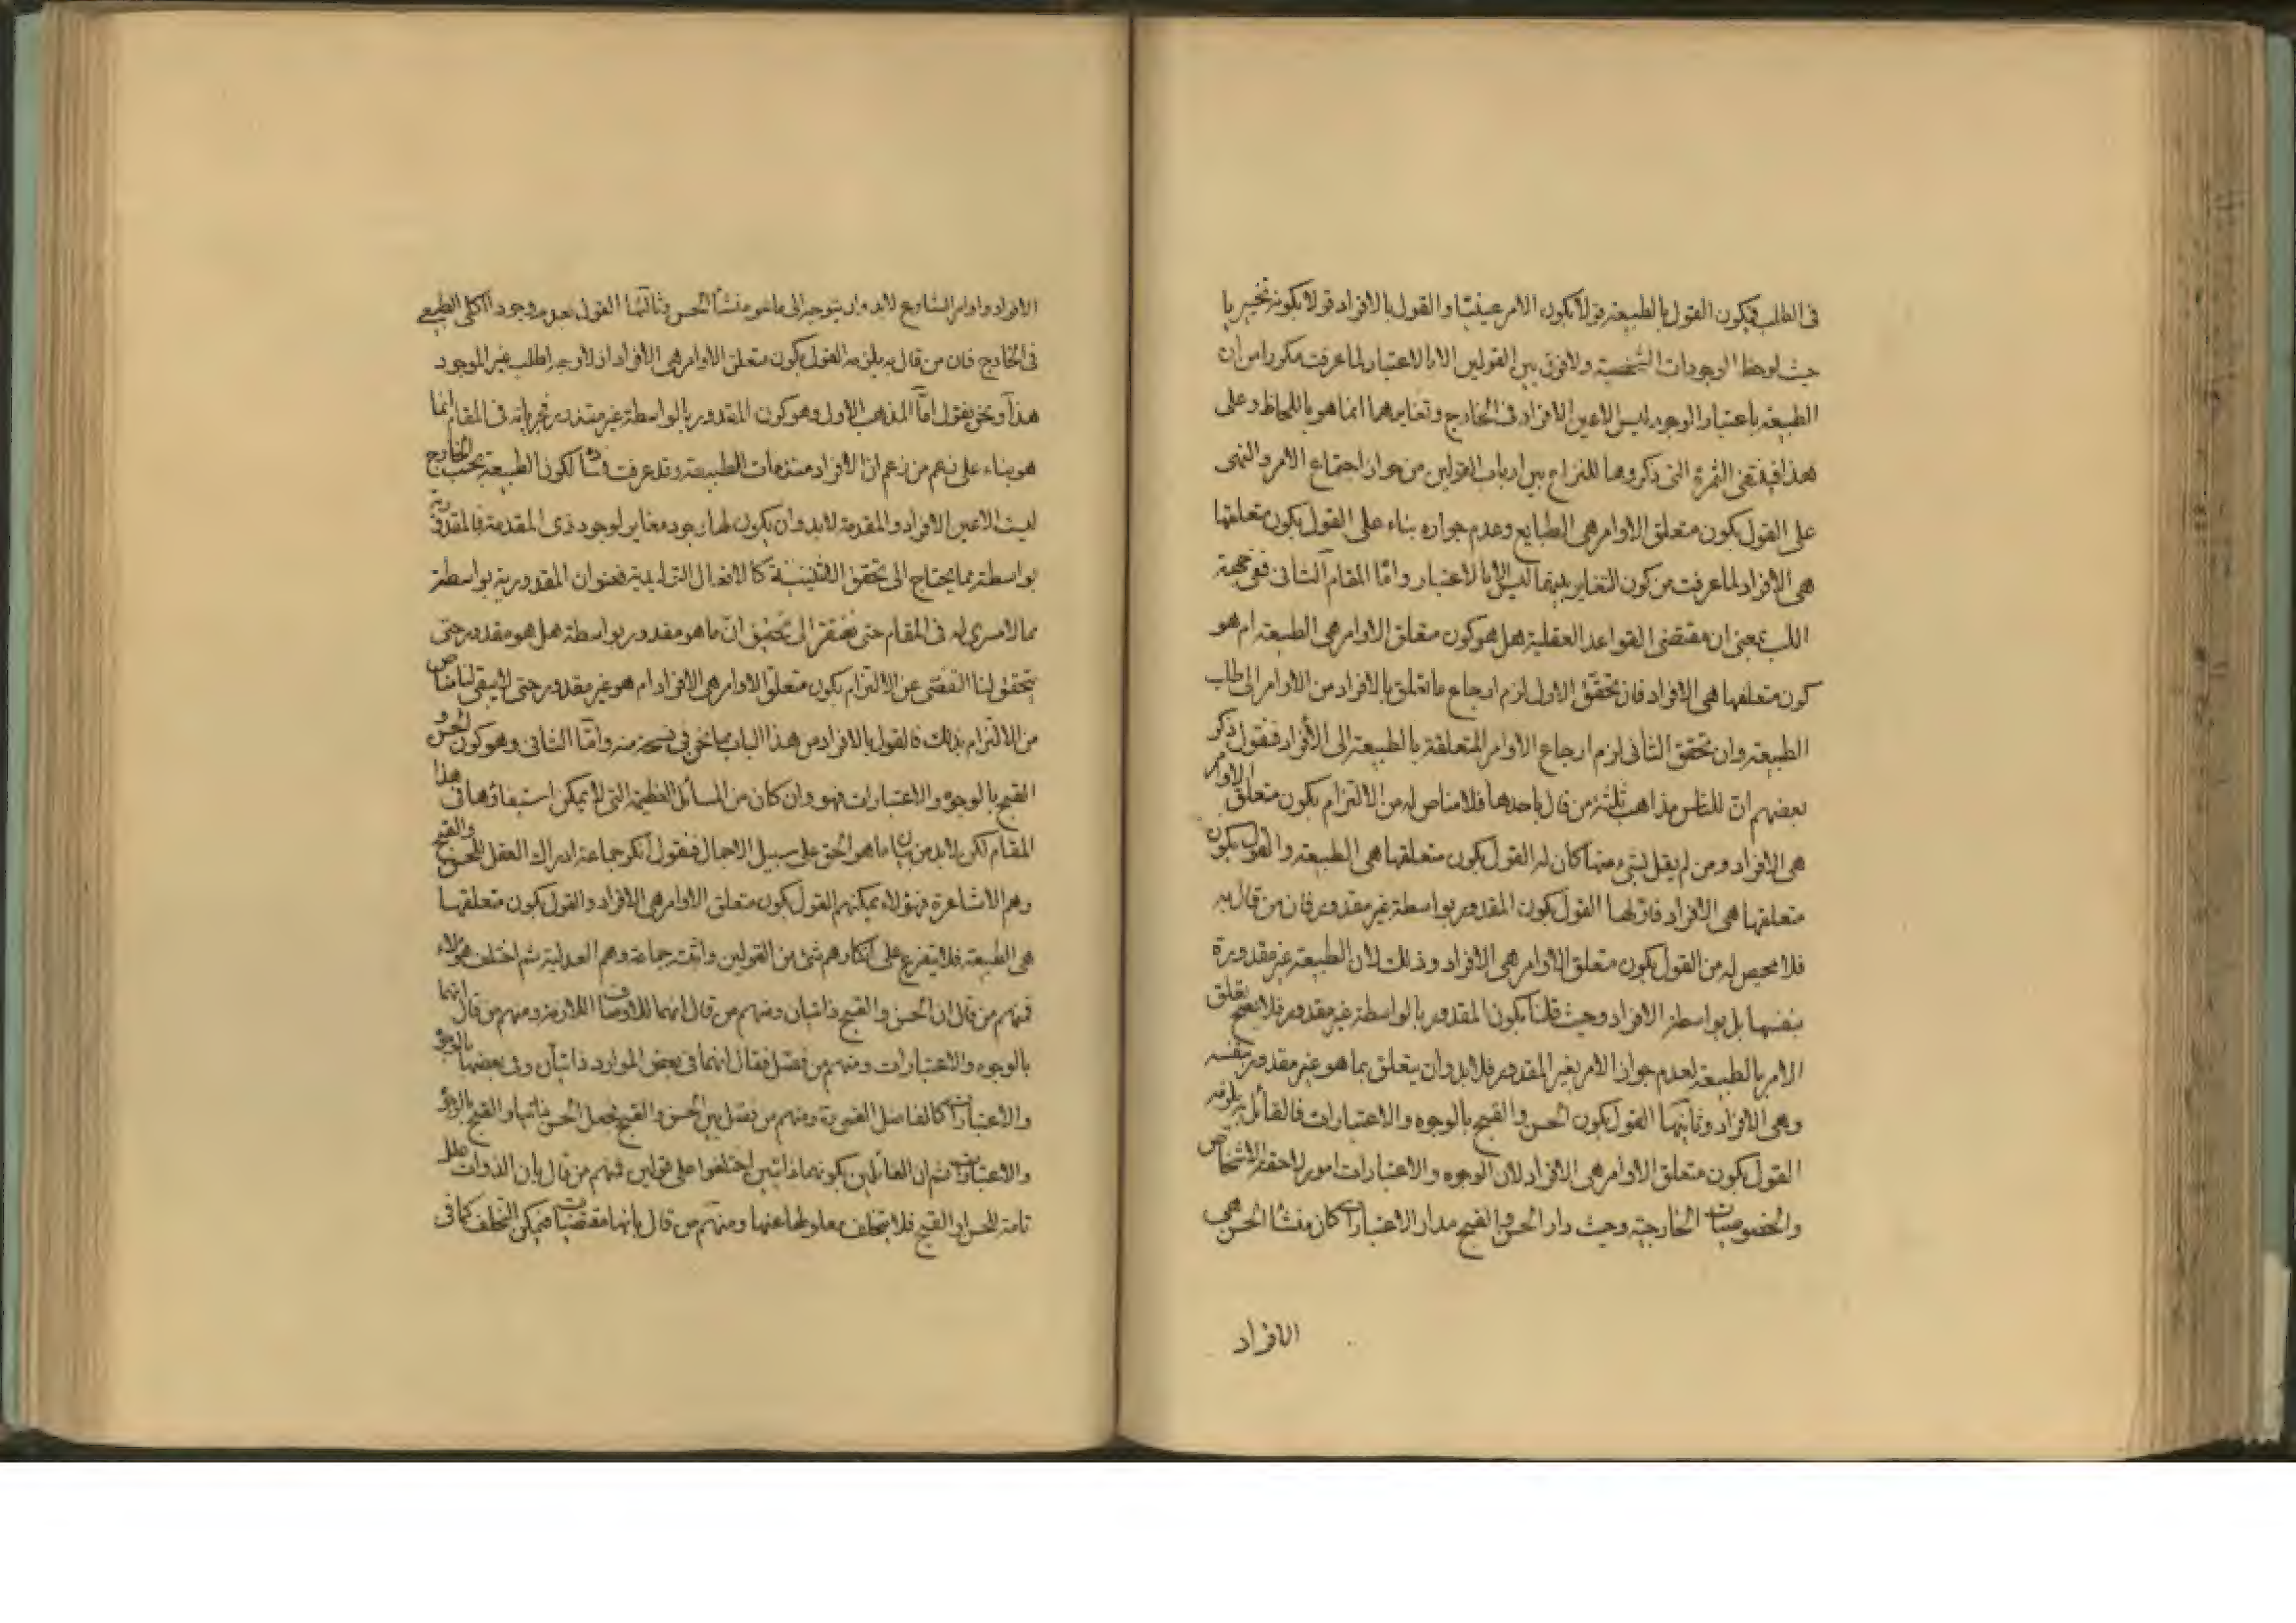 فى الطلب فيكون القول بالطبيعة قولا بكون الامر عينيّا والقول بالافراد قولا بكونه تخييريا
حيث لوحظ الوجودات الشخصية ولا فرق بين القولين الا بالاعتبار لما عرفت مكررا من ان
الطبيعة باعتبار الوجود ليس الا عين الافراد فى الخارج وتغايرهما انما هو باللحاظ وعلى
هذا فينتفى الثمرة التى ذكروها للنزاع بين ارباب القولين من جواز اجتماع الامر والنهى
على القول بكون متعلق الاوامر هى الطبايع وعدم جوازه بناء على القول بكون متعلقها
هى الافراد لما عرفت من كون التغاير بينهما ليس الا بالاعتبار وامّا المقام الثانى ففى جهة
اللب بمعنى ان مقتضى القواعد العقلية هل هو كون متعلق الاوامر هى الطبيعة ام هو
كون متعلقها هى الافراد فان تحقق الاول لزم ارجاع ما تعلق بالافراد من الاوامر الى طلب
الطبيعة وان تحقق الثانى لزم ارجاع الاوامر المتعلقة بالطبيعة الى الأفراد فنقول ذكر
بعضهم انّ للناس مذاهب ثلثة من قال باحدها فلا مناص له من الالتزام بكون متعلق الاوامر
هى الافراد ومن لم يقل بشئ منها كان له القول بكون متعلقها هى الطبيعة والقول بكون
متعلقها هى الافراد فاولها القول بكون المقدور بواسطة غير مقدور فان من قال به
فلا محيص له من القول بكون متعلق الاوامر هى الافراد وذلك لان الطبيعة غير مقدورة
بنفسها بل بواسطة الافراد وحيث قلنا بكون المقدور بالواسطة غير مقدور فلا يصح تعلق
الامر بالطبيعة لعدم جواز الامر بغير المقدور فلا بد وان يتعلق بما هو غير مقدور بنفسه
وهى الافراد وثانيها القول بكون الحسن والقبح بالوجوه والاعتبارات فالقائل به يلزمه
القول بكون متعلق الاوامر هى الافراد لان الوجوه والاعتبارات امور لاحقة للاشخاص
والخصوصيات الخارجية وحيث دار الحسن والقبح مدار الاعتبارات كان منشأ الحسن هى
الافراد
الافراد واوامر الشارع لابد وان يتوجه الى ما هو منشأ الحسن وثالثها القول بعدم وجود الكلى الطبيعى
فى الخارج فان من قال به يلزمه القول بكون متعلق الاوامر هى الافراد اذ لا وجه لطلب غير الموجود
هذا ونحن نقول امّا المذهب الاول وهو كون المقدور بالواسطة غير مقدور فجريانه فى المقام انما
هو بناء على زعم من زعم انّ الافراد مقدمات الطبيعة وقد عرفت فساده لكون الطبيعة بحسب الخارج
ليست الا عين الافراد والمقدمة لابد وان يكون لها وجود مغاير لوجود ذى المقدمة فالمقدورية
بواسطة مما يحتاج الى تحقق الاثنينية كالافعال التوليدية فعنوان المقدورية بواسطة
مما لا مسرى له فى المقام حتى نفتقر الى تحقيق انّ ما هو مقدور بواسطة هل هو مقدور حتى
يتحقق لنا التفصّى عن الالتزام بكون متعلق الاوامر هى الافراد ام هو غير مقدور حتى لا يبقى لنا مناص
من الالتزام بذلك فالقول بالافراد من هذا الباب مما نحن فى فسحة منه وامّا الثانى وهو كون الحسن و
القبح بالوجوه والاعتبارات فهو وان كان من المسائل العظيمة التى لا يمكن استيفاؤها فى هذا
المقام لكن لابد من بيان ما هو الحق على سبيل الاجمال فنقول انكر جماعة ادراك العقل للحسن والقبح
وهم الاشاعرة فهؤلاء يمكنهم القول بكون متعلق الاوامر هى الافراد والقول بكون متعلقها
هى الطبيعة فلا يتفرع على انكارهم شئ من القولين واثبته جماعة وهم العدلية ثم اختلف هؤلاء
فمنهم من قال ان الحسن والقبح ذاتيان ومنهم من قال انهما للاوصاف اللازمة ومنهم من قال انهما
بالوجوه والاعتبارات ومنهم من فصّل فقال انهما فى بعض الموارد ذاتيان وفى بعضها بالوجوه
والاعتبارات كالفاضل القمى ره ومنهم من فصّل بين الحسن والقبح فجعل الحسن ذاتيا والقبح بالوجوه
والاعتبارات ثم ان القائلين بكونهما ذاتيين اختلفوا على قولين فمنهم من قال بان الذوات علل
تامة للحسن او القبح فلا يتخلف معلولها عنها ومنهم من قال بانها مقتضيات فيمكن التخلف كما فى